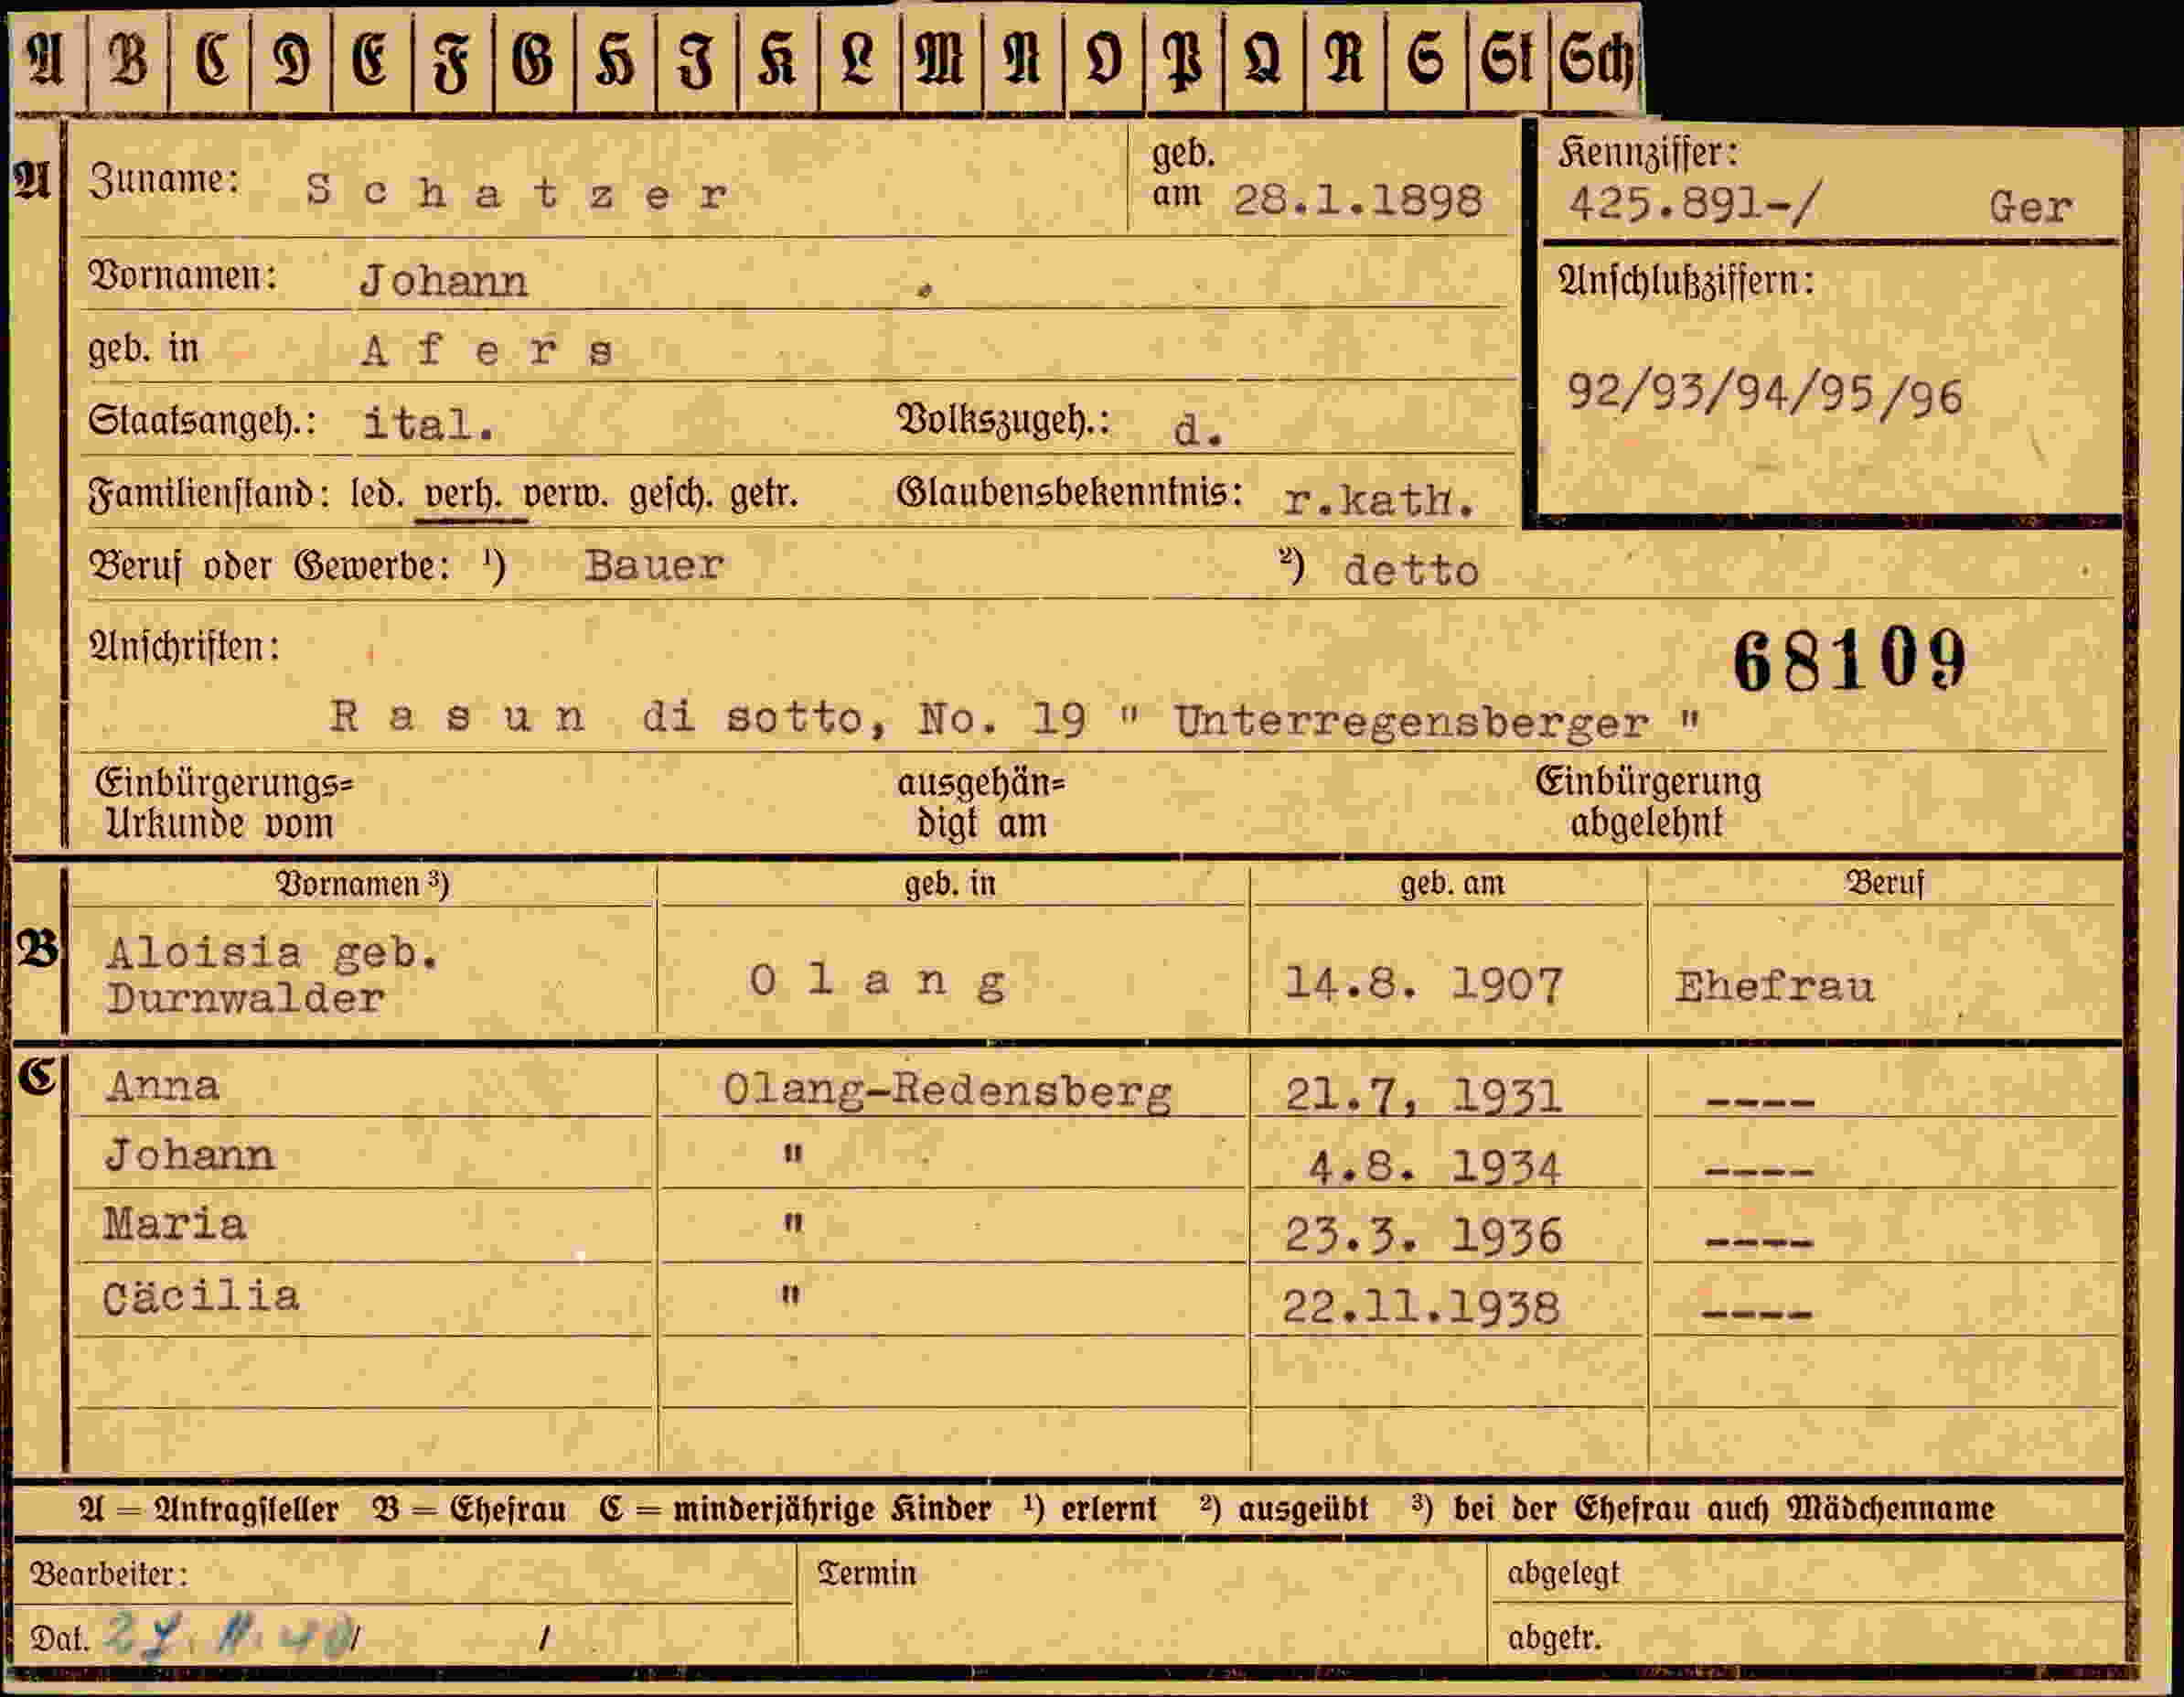 A B C D E F G H I K L M N O P Q R S St Sch
A Zuname: Schatzer geb. am 28.1.1898
Kennziffer:
425.891-/ Ger
Vornamen: Johann
Anschlußziffern:
geb. in Afers
92/93/94/95/96
Staatsangeh.: ital. Volkszugeh.: d.
Familienstand: led. verh. verw. gesch. getr. Glaubensbekenntnis: r.kath.
Beruf oder Gewerbe: ¹) Bauer ²) detto
Anschriften:
68109
Rasun di sotto, No. 19 " Unterregensberger "
Einbürgerungs= ausgehän= Einbürgerung
Urkunde vom digt am abgelehnt
Vornamen ³) geb. in geb. am Beruf
B Aloisia geb.
Durnwalder Olang 14.8. 1907 Ehefrau
C Anna Olang-Redensberg 21.7, 1931 ----
Johann " 4.8. 1934 ----
Maria " 23.3. 1936 ----
Cäcilia " 22.11.1938 ----
A = Antragsteller B = Ehefrau C = minderjährige Kinder ¹) erlernt ²) ausgeübt ³) bei der Ehefrau auch Mädchenname
Bearbeiter: Termin abgelegt
Dat. 27. 11. 40/ / abgetr.